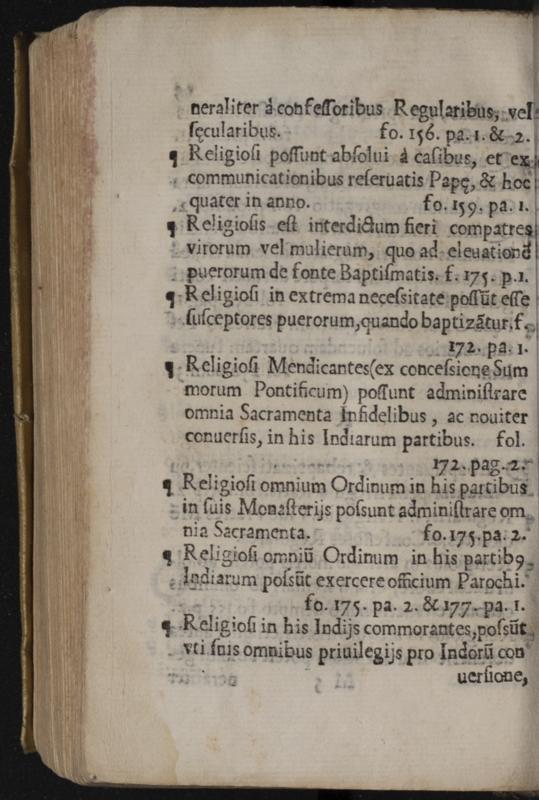 neraliter á confeſſoribus Regularibus, vel
ſęcularibus. fo. 156. pa. 1. & 2.
¶ Religioſi poſſunt abſolui á caſibus, et ex
communicationibus reſeruatis Papę, & hoc
quater in anno. fo. 159. pa. 1.
¶ Religioſis eſt interdictum fieri compatres
virorum vel mulierum, quo ad eleuationē
puerorum de fonte Baptiſmatis. f. 175. p.1.
¶ Religioſi in extrema neceſsitate poſſūt eſſe
ſuſceptores puerorum, quando baptizātur. f.
172. pa. 1.
¶ Religioſi Mendicantes (ex conceſsione Sum
morum Pontificum) poſſunt adminiſtrare
omnia Sacramenta Infidelibus, ac nouiter
conuerſis, in his Indiarum partibus. fol.
172. pag. 2.
¶ Religioſi omnium Ordinum in his partibus
in ſuis Monaſterijs poſsunt adminiſtrare om
nia Sacramenta. fo. 175. pa. 2.
¶ Religioſi omniū Ordinum in his partibꝰ
Indiarum poſsūt exercere officium Parochi.
fo. 175. pa. 2. & 177. pa. 1.
¶ Religioſi in his Indijs commorantes, poſsūt
vti ſuis omnibus priuilegijs pro Indorū con
uerſione,